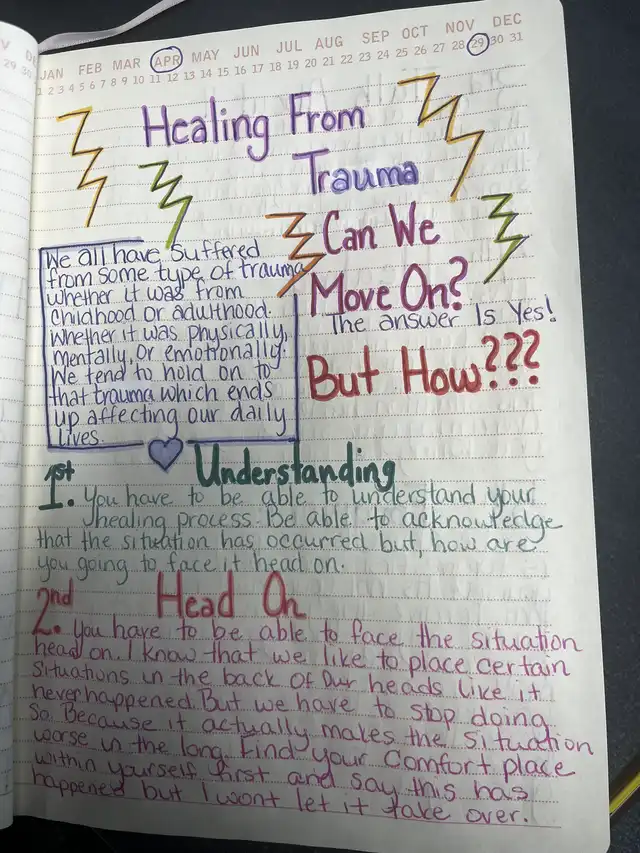 JAN FEB MAR APR MAY JUN JUL AUG SEP OCT NOV DEC
1 2 3 4 5 6 7 8 9 10 11 12 13 14 15 16 17 18 19 20 21 22 23 24 25 26 27 28 29 30 31
Healing From
Trauma
We all have suffered
from some type of trauma
whether it was from
childhood or adulthood.
Whether it was physically,
mentally, or emotionally.
We tend to hold on to
that trauma which ends
up affecting our daily
lives.
Can We
Move On?
The answer Is Yes!
But How???
1st Understanding
1. You have to be able to understand your
healing process. Be able to acknowledge
that the situation has occurred but, how are
you going to face it head on.
2nd Head On
2. You have to be able to face the situation
head on. I know that we like to place certain
situations in the back of our heads like it
never happened. But we have to stop doing
So. Because it actually makes the situation
worse in the long. Find your comfort place
within yourself first and say this has
happened but I wont let it take over.